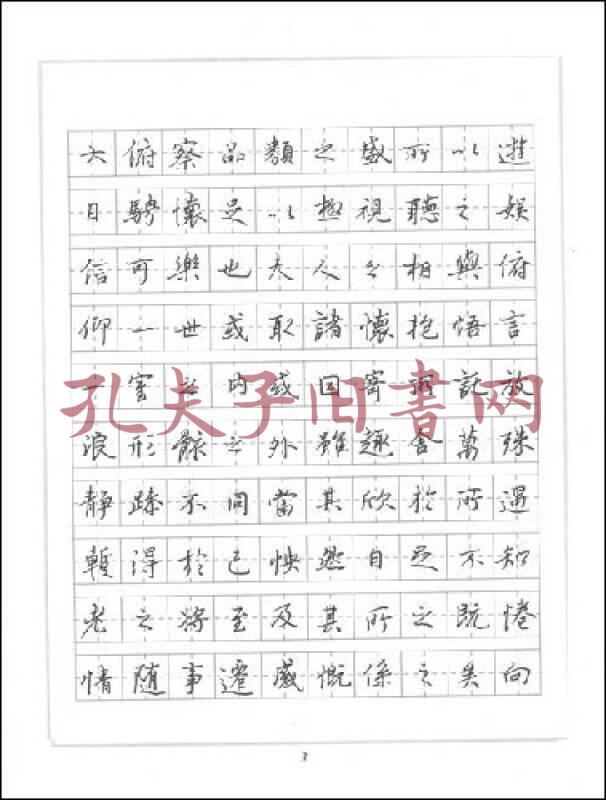 大俯察品類之盛所以遊
目騁懷足以極視聽之娛
信可樂也夫人之相與俯
仰一世或取諸懷抱悟言
一室之內或因寄所託放
浪形骸之外雖趣舍萬殊
靜躁不同當其欣於所遇
暫得於己怏然自足不知
老之將至及其所之既惓
情随事遷感慨係之矣向
孔夫子旧书网
3